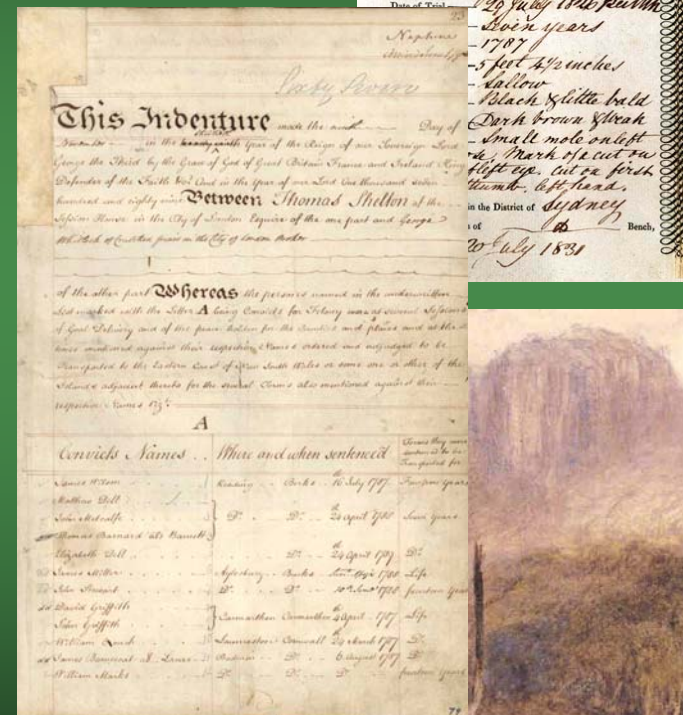 23
Neptune
This Indenture made the ninth Day of
November in the thirtieth Year of the Reign of our Sovereign Lord
George the Third by the Grace of God of Great Britain France and Ireland King
Defender of the Faith &c. And in the Year of our Lord One thousand seven
hundred and eighty nine Between Thomas Shelton of the
Session House in the City of London Esquire of the one part and George
Whitlock of Crutched friars in the City of London Broker
of the other part Whereas the persons named in the underwritten
List marked with the Letter A being Convicts for Felony were at several Sessions
of Goal Delivery and of the peace holden for the Counties and places and at the
times mentioned against their respective Names ordered and adjudged to be
Transported to the Eastern Coast of New South Wales or some one or other of the
Islands adjacent thereto for the several Terms also mentioned against their
respective Names
A
Convicts Names Where and when sentenced Terms they were sentenced to be Transported for
James Reading Berks 16 July 1787 Fourteen Years
Matthias Dell
John Metcalfe Do. Do. 24 April 1788 Seven Years
Thomas Barnard als Barnett
Elizabeth Dell Do. 24 April 1787 Do.
James Miller Aylesbury Bucks 1788 Life
John Stewart Do. Do. 10th 1788 fourteen Years
David Griffith
John Griffith Carmarthen Carmarthen April 1787 Life
William Launceston Cornwall 24 March 1787 Do.
James als Bodmin Do. 6 August 1787 Do.
William Marks Do. Do. Do. fourteen Years
79
Date of Trial
29 July 1826
Seven years
1787
5 feet 4½ inches
Sallow
Black & little bald
Dark brown & Weak
Small mole on left
Mark of a cut on
left eye. cut on first
thumb. left hand.
in the District of Sydney
of Bench,
20 July 1831